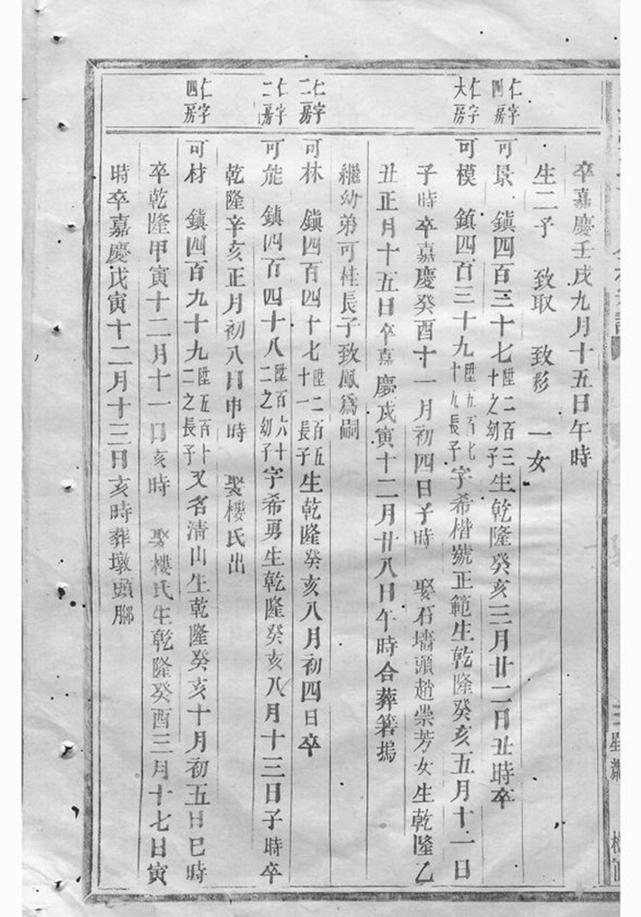 卒嘉慶壬戌九月十五日午時
生二子 致取 致彩 一女
仁字四房
可景 鎮四百三十七陞二百三十之幼子生乾隆癸亥三月廿二日丑時卒
仁字大房
可模 鎮四百三十九陞五百七十九長子字希楷號正範生乾隆癸亥五月十一日
子時卒嘉慶癸酉十一月初四日子時 娶石墻頭趙崇芳女生乾隆乙
丑正月十五日卒嘉慶戊寅十二月廿八日午時合葬箬塢
繼幼弟可桂長子致鳳爲嗣
仁字二房
可林 鎮四百四十七陞二百五十一長子生乾隆癸亥八月初四日卒
仁字二房
可能 鎮四百四十八陞百六十二之幼子字希勇生乾隆癸亥八月十三日子時卒
乾隆辛亥正月初八日申時 娶樓氏出
仁字四房
可材 鎮四百九十九陞五百十二之長子又名清山生乾隆癸亥十月初五日巳時
卒乾隆甲寅十二月十一日亥時 娶樓氏生乾隆癸酉三月十七日寅
時卒嘉慶戊寅十二月十三日亥時葬墩頭腳